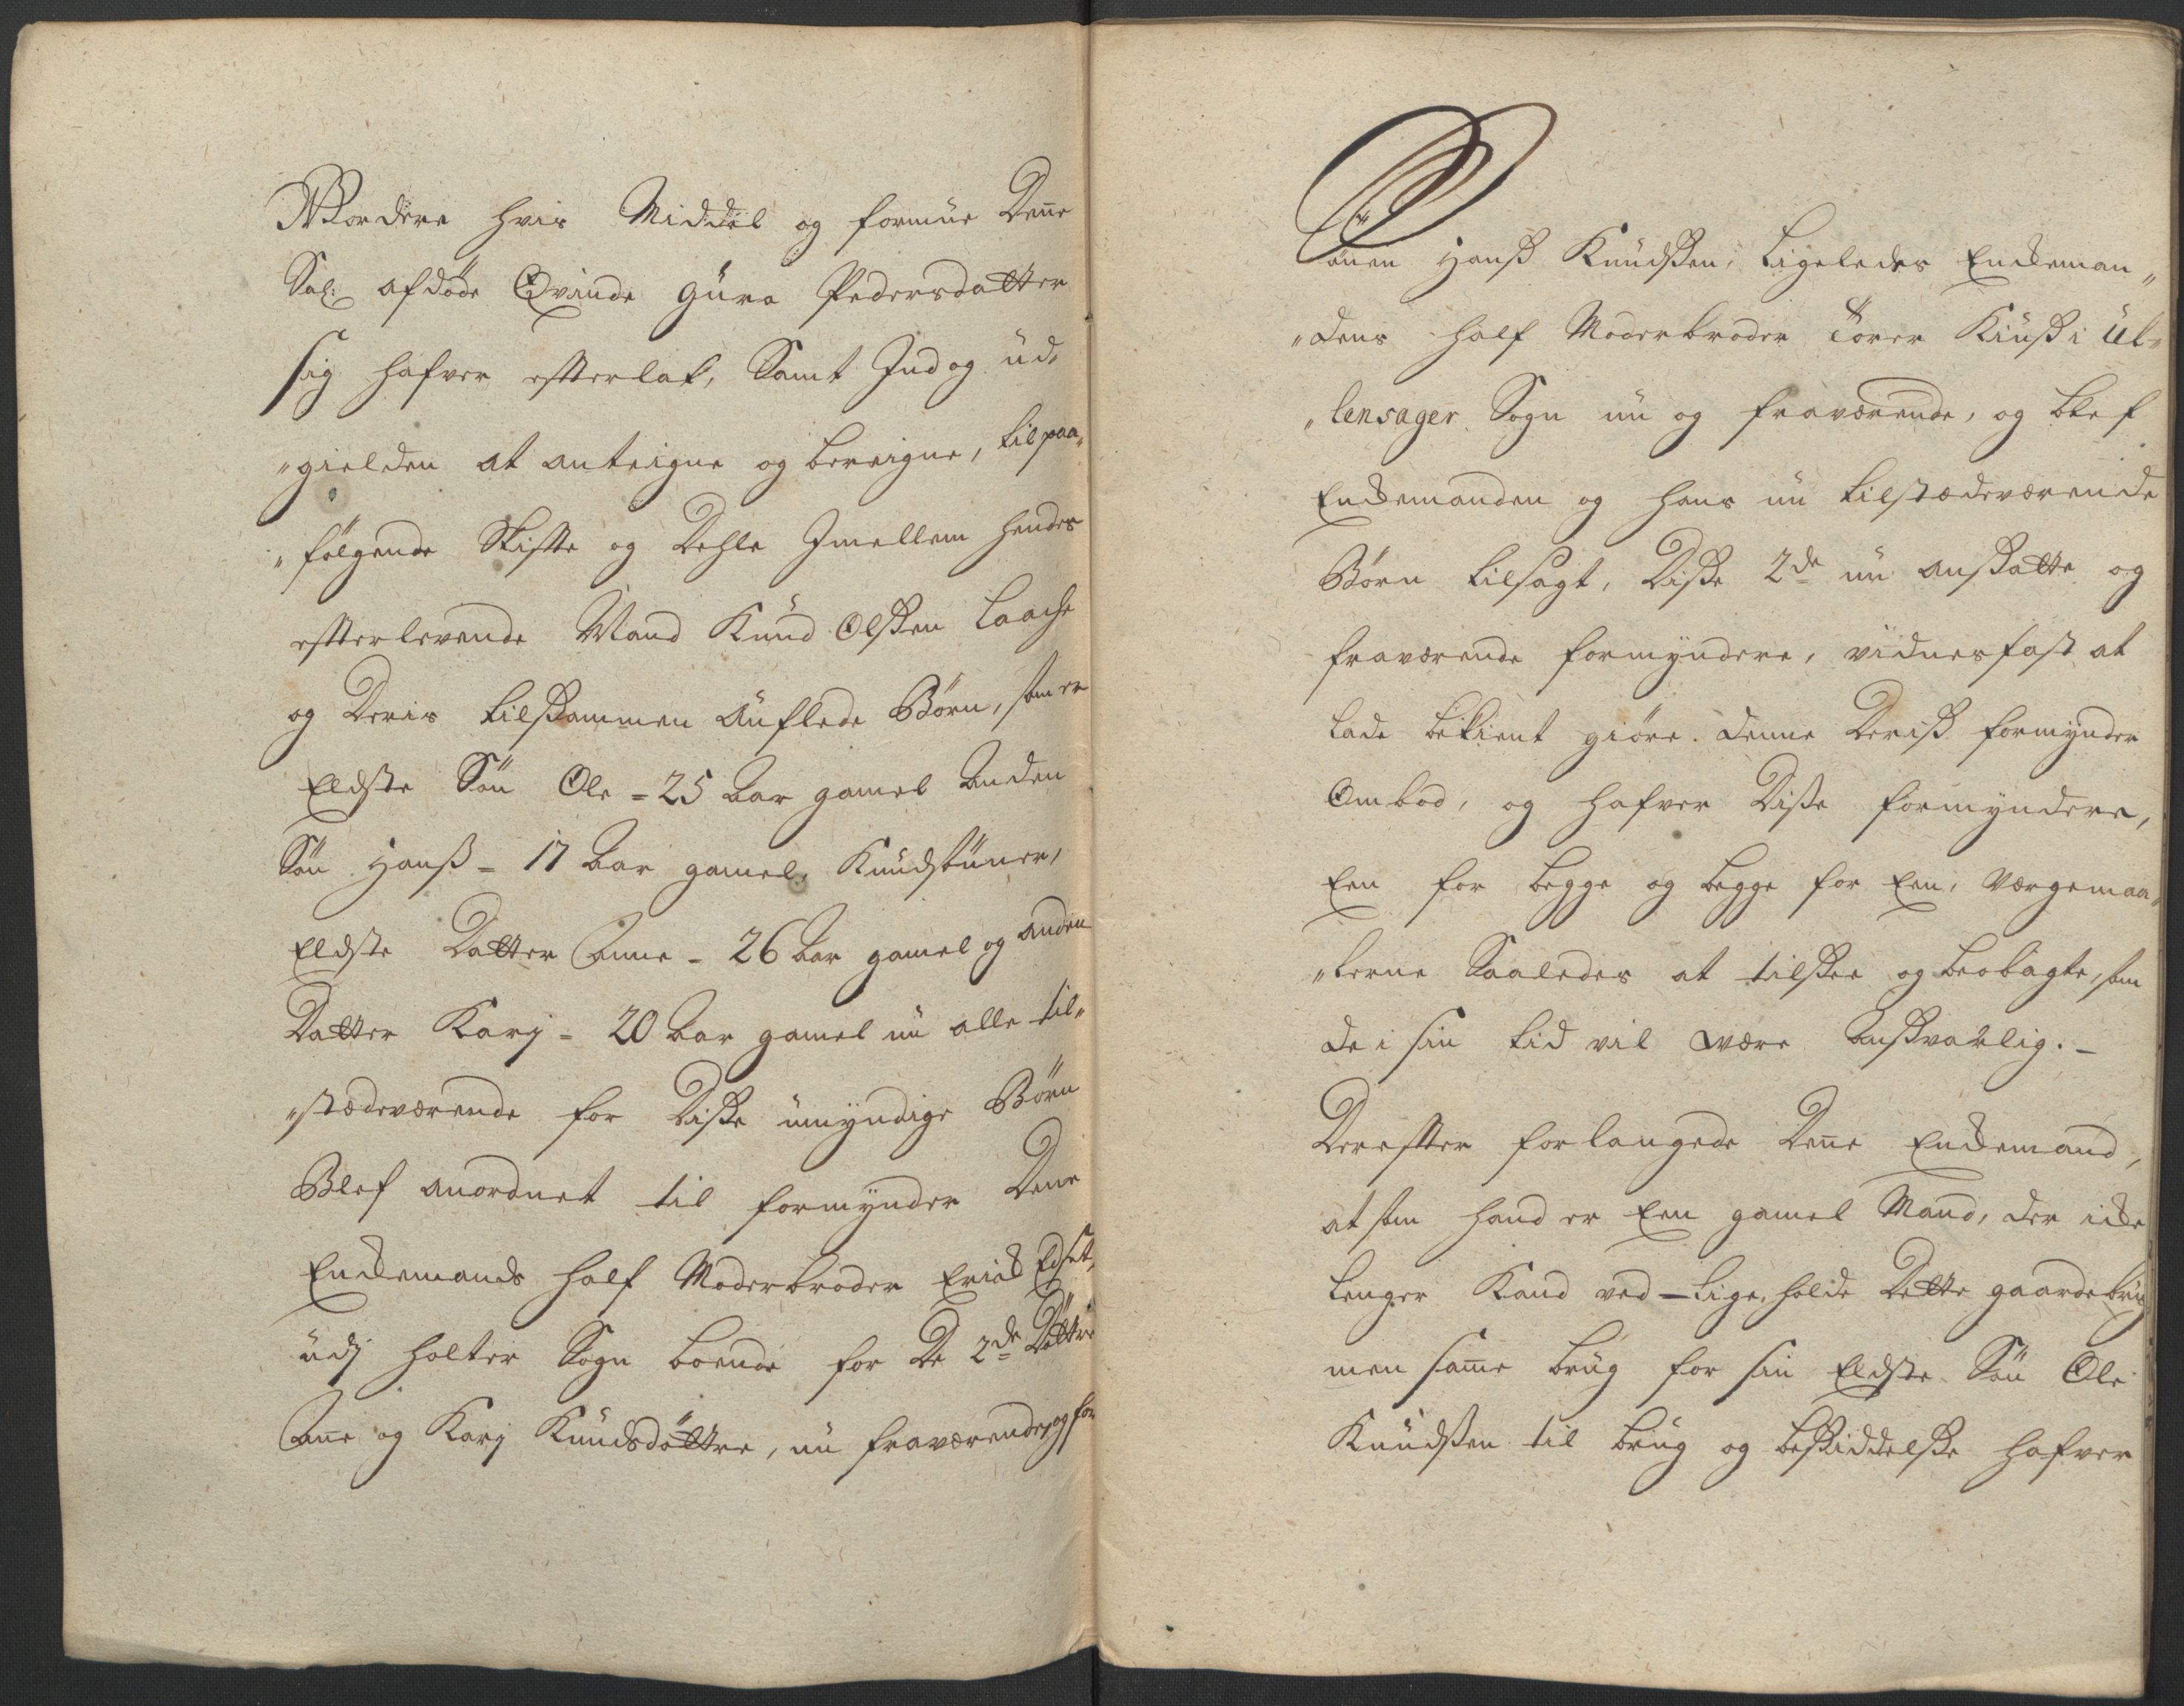 Wordere hvis Middel og formue Denne
Sal: afdöde Qvinde Gura Pedersdatter
sig hafver efterlat, Samt Ind og ud„
„gielden at anteigne og bereigne, til paa„
„fölgende Skifte og Dehle Imellem hendes
efterlevende Mand Knud Olssen Laache
og Deris tilsammen Auflede Börn, som er
Eldste Sön Ole = 25 Aar gamel Anden
Sön Hanß = 17 Aar gamel, Knudsönner,
Eldste Datter Anne = 26 Aar gamel og anden
Datter Karj = 20 Aar gamel nu alle til„
„stædeværende for Disse umyndige Börn
Blef anordnet til formynder Denne
Enckemands half Moderbroder Erick
udj Holter Sogn boende for De 2de Döttre
Anne og Karj Knudsdöttre, nu fraværende, og for
Sönen Hanß Knudssen, Ligeledes Enckeman„
„dens half Moderbroder Torer Kiuss i Ul„
„lensager Sogn nu og fraværende, og blef
Enckemanden og hans nu tilstædeværende
Börn tilsagt, Disse 2de nu ansatte og
fraværende formyndere, vidnesfast at
lade bekient giöre. denne Deriß formynder
Ombod, og hafver Disse formyndere,
Een for begge og begge for Een, Værgemaa„
„lerne Saaledes at tilsee og beobagte, som
de i sin tid vil være Ansvarlig. –
Derefter forlangede Denne Enckemand,
at som hand er Een gamel Mand, der icke
lenger Kand ved – lige, holde Dette gaardebrug
men samme brug for sin Eldste Sön Ole
Knudssen til brug og besiddelse hafver